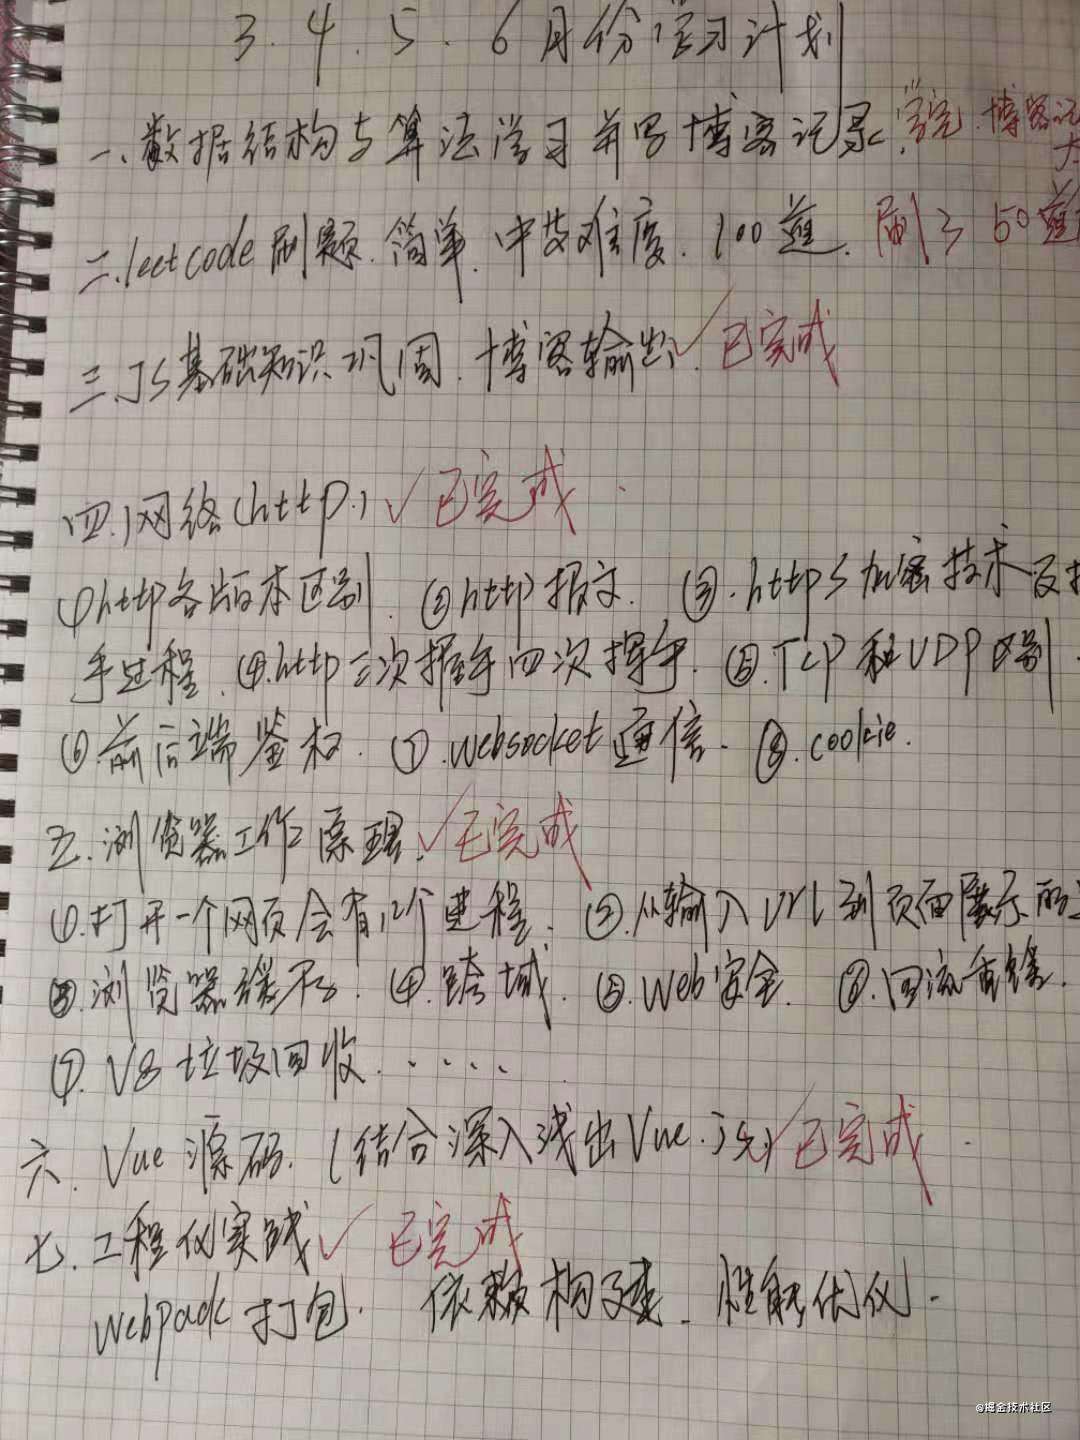 3.4.5.6月份学习计划
一、数据结构与算法学习并写博客记录. 学完.博客记
二.leetcode刷题.简单.中等难度.100道. 刷了50道
三.JS基础知识巩固.博客输出. ✓已完成
四.网络(http.) ✓已完成.
①http各版本区别. ②http报文. ③.https加密技术及握
手过程. ④.http三次握手四次挥手. ⑤.TCP和UDP区别.
⑥.前后端鉴权. ⑦.websocket通信. ⑧.cookie.
五.浏览器工作原理. ✓已完成
①.打开一个网页会有几个进程. ②.从输入url到页面展示的
③.浏览器缓存. ④.跨域. ⑤.Web安全. ⑥.回流重绘.
⑦.V8垃圾回收......
六.Vue源码.(结合深入浅出Vue.js) ✓已完成.
七.工程化实践 ✓ 已完成
webpack打包. 依赖构建. 性能优化.
@掘金技术社区